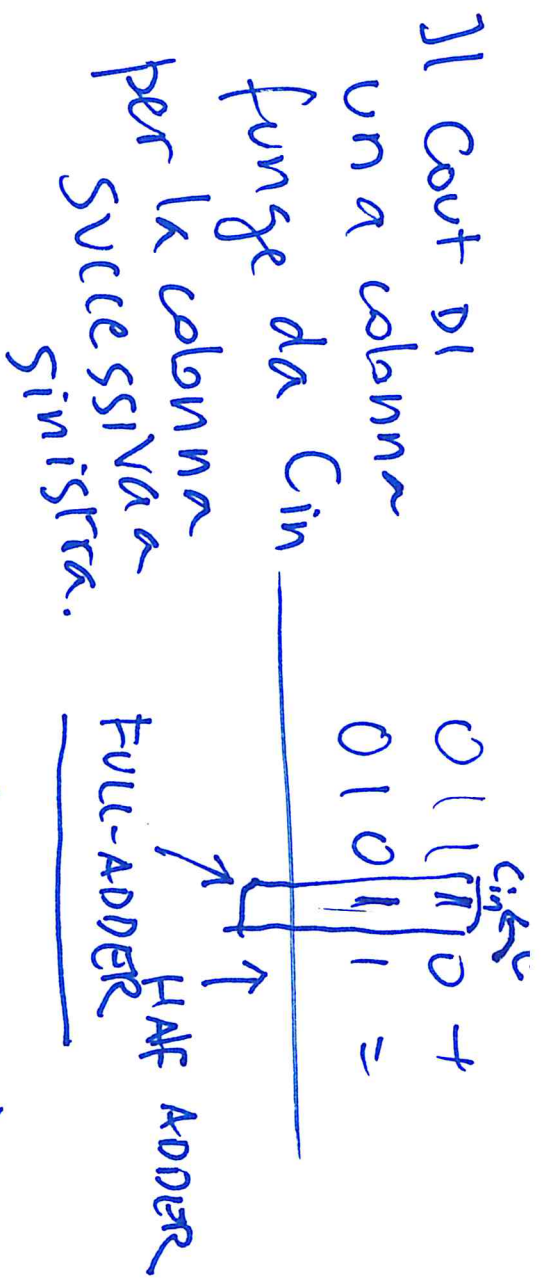 Il Cout DI
una colonna
funge da Cin
per la colonna
successiva a
sinistra.
Cin
0 1 1 1 0 +
0 1 0 1 1 =
FULL-ADDER
HAF ADDER